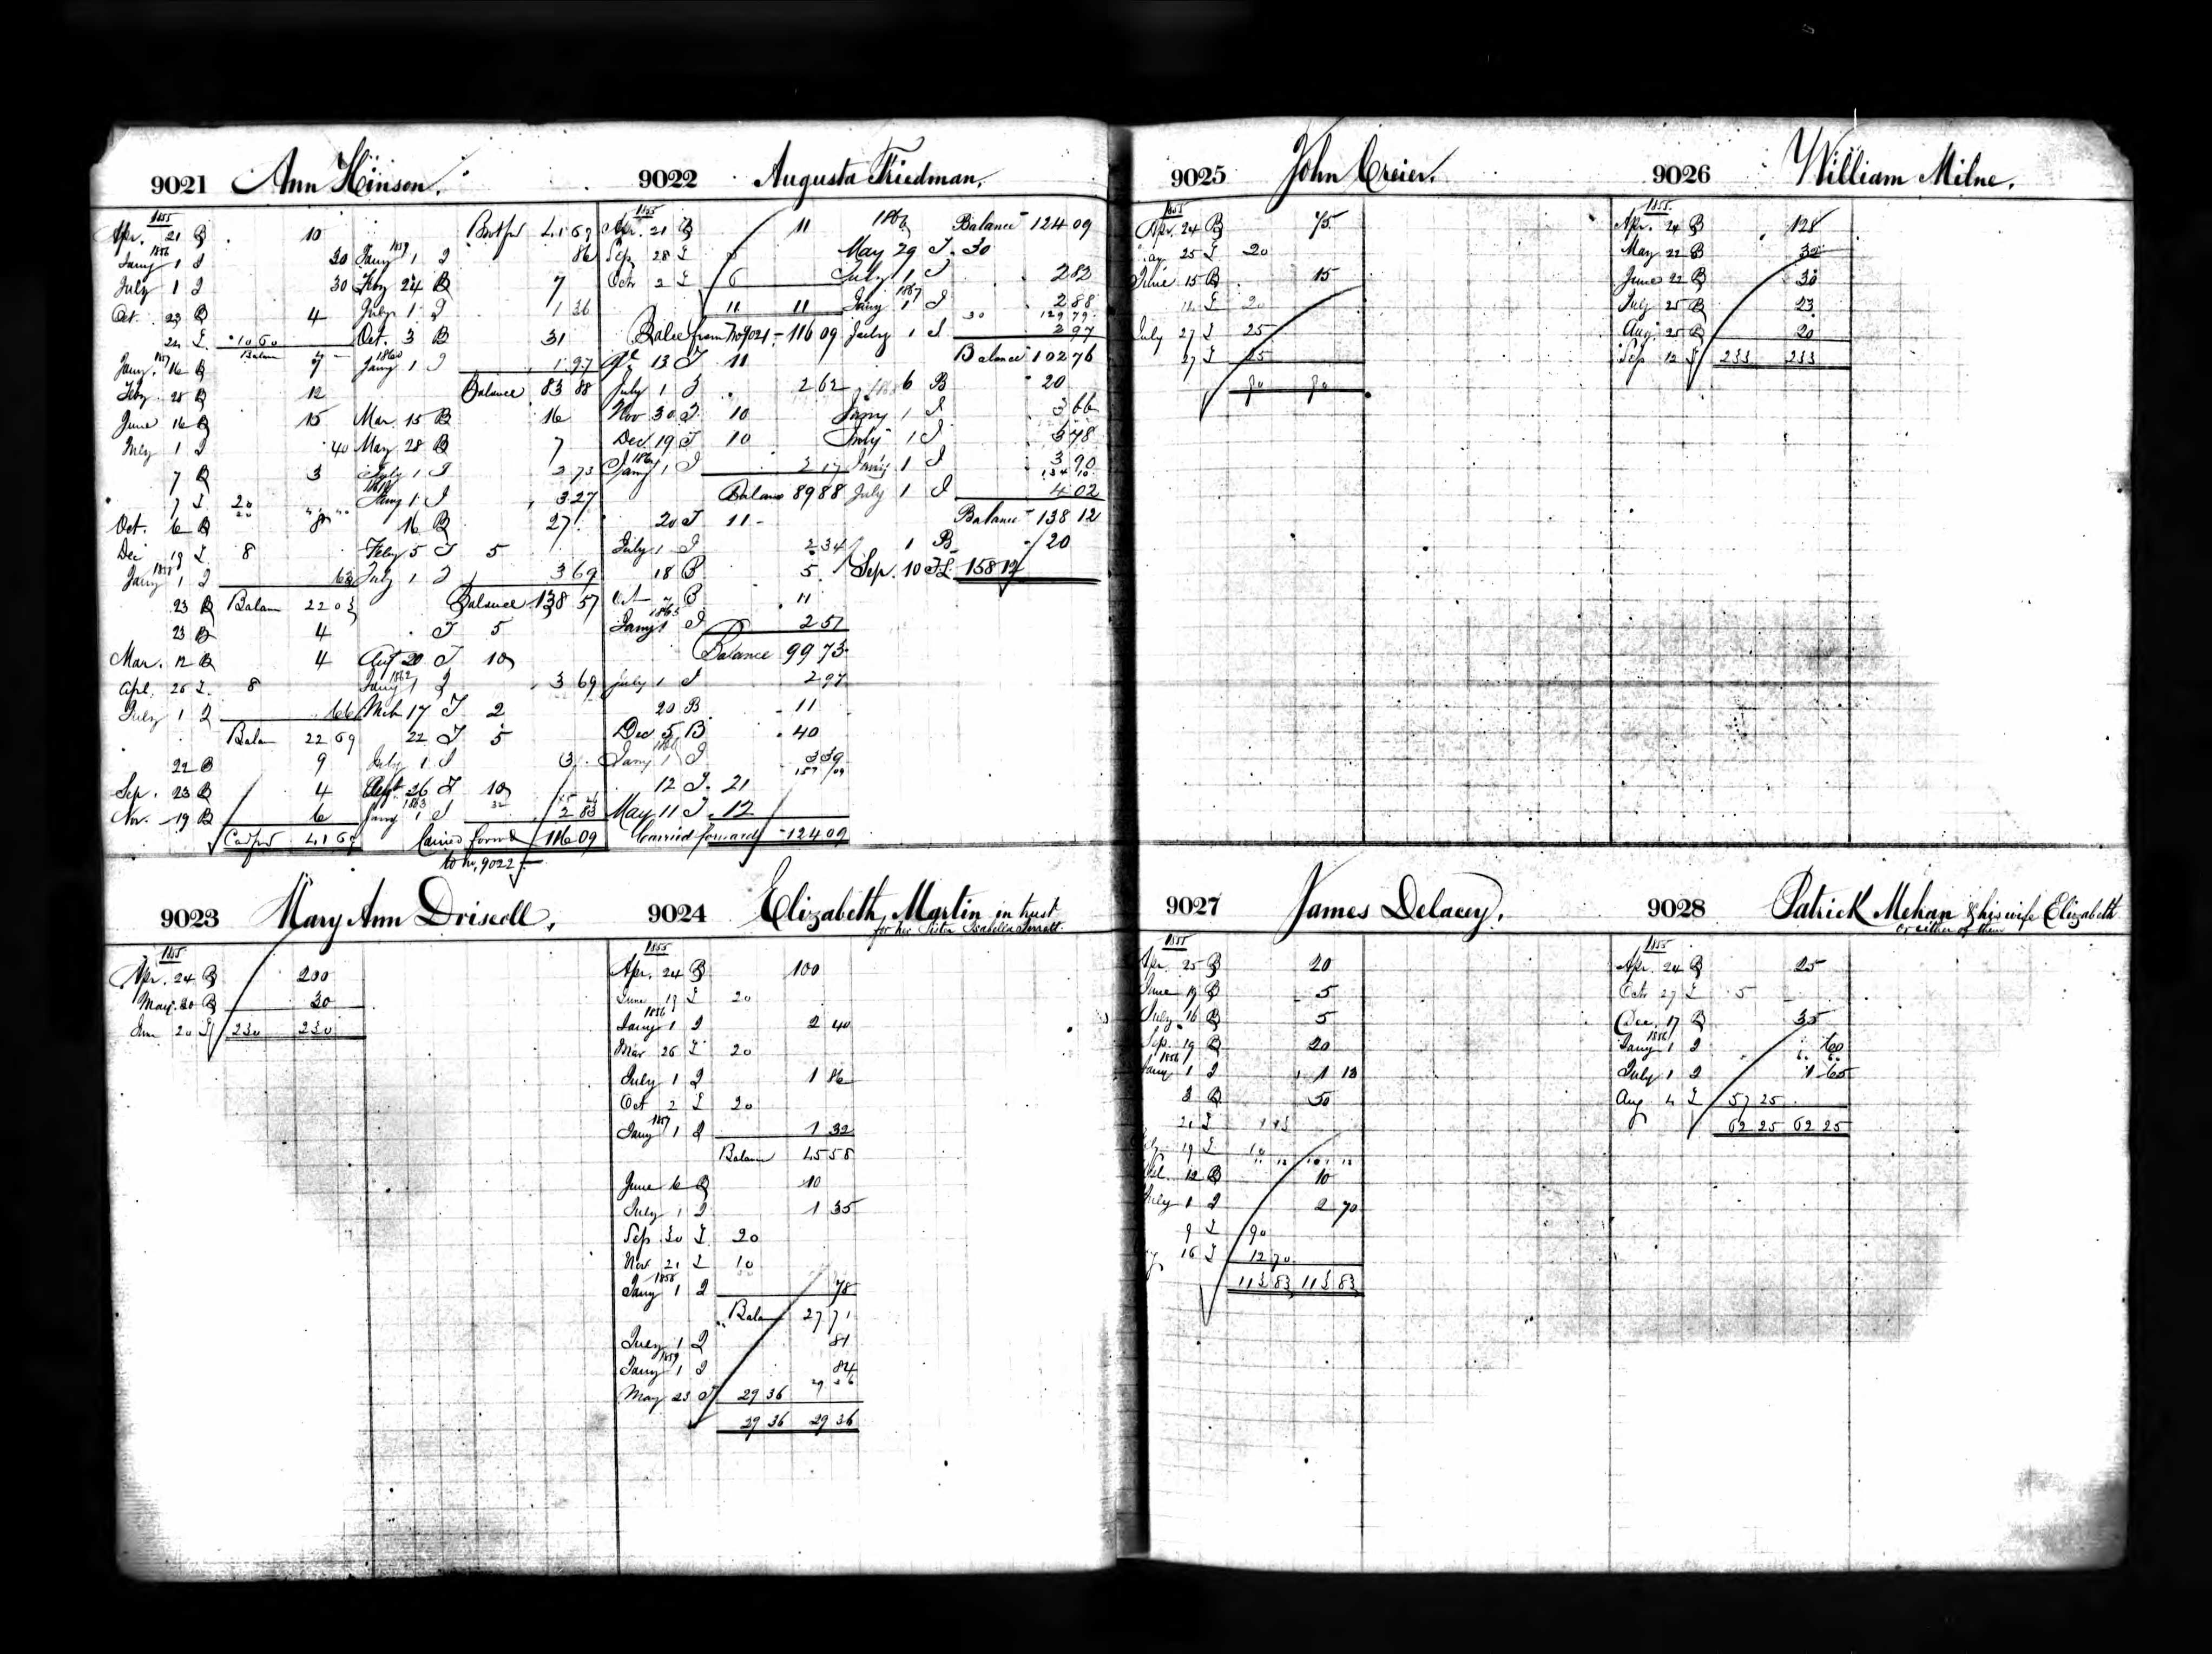 9021 Ann Hinson.
1855
Apr. 21 B 10
1856
Jany 1 I 30
July 1 I 30
Oct. 23 B 4
24 L 10 60
Balan
1857
Jany. 16 B 7
Feby 28 B 12
June 16 B 15
July 1 I 40
7 B 3
7 L 20
Oct. 6 B 8
Dec 19 L 8
1858
Jany 1 I 63
Balan 22 03
23 B
23 B 4
Mar. 12 B 4
Apl. 26 L 8
July 1 I 66
Balan 22 69
22 B 9
Sep. 23 B 4
Nov. 19 B 6
Cad fwd 41 69
Brot fwd 41 69
1859
Jany 1 I 86
Feby 24 B 7
July 1 I 1 36
Oct. 3 B 31
1860
Jany 1 I 1 97
Balance 83 88
Mar. 15 B 16
May 28 B 7
July 1 I 2 73
Jany 1 I 3 27
16 B 27
Feby 5 T 5
July 1 I 3 69
Balance 138 57
T 5
Aug 20 T 10
1862
Jany 1 I 3 69
Mch 17 T 2
22 T 5
July 1 I 3
Sept 26 T 10
1863
Jany 1 I 2 83
Carried forwd 116 09
to no. 9022
9022 Augusta Friedman.
1855
Apr. 21 B 11
Sep. 28 L 5
Octr 2 L 6
11 11
Balce from No 9021 - 116 09
13 T 11
July 1 I 2 62
Nov 30 T 10
Dec. 19 T 10
1864
Jany 1 I 2 17
Balance 89 88
20 T 11
July 1 I 2 34
18 B 5
Oct 7 B 11
1865
Jany 1 I 2 51
Balance 99 73
July 1 I 2 97
20 B 11
Dec 5 B 40
1866
Jany 1 I 3 39
157 09
12 T 21
May 11 T 12
Carried forward 124 09
1866
Balance 124 09
May 29 T 30
July 1 I 2 82
1867
Jany 1 I 2 88
30 129 79
July 1 I 2 97
Balance 102 76
6 B 20
Jany 1 I 3 66
July 1 I 3 78
Jany 1 I 3 90
134 10
July 1 I 4 02
Balance 138 12
1 B 20
Sep. 10 TL 158 12
9023 Mary Ann Driscoll.
1855
Apr. 24 B 200
May 20 B 30
June 20 L 230 230
9024 Elizabeth Martin in trust
for her Sister Isabella
1855
Apr. 24 B 100
June 19 L 20
1856
Jany 1 I 2 40
Mar 26 L 20
July 1 I 1 86
Oct 2 L 20
1857
Jany 1 I 1 32
Balan 45 58
June 6 B 10
July 1 I 1 35
Sep 30 L 20
Nov 21 L 10
1858
Jany 1 I 78
Balan 27 71
July 1 I 81
1859
Jany 1 I 84
29 36
May 23 T 29 36
29 36 29 36
9025 John Creier.
1855
Apr. 24 B 75
25 L 20
June 15 B 15
L 20
July 27 L 25
27 L 25
90 90
9026 William Milne.
1855
Apr. 24 B 128
May 22 B 32
June 22 B 30
July 25 B 23
Aug. 25 B 20
Sep. 12 L 233 233
9027 James Delacey.
1855
Apr. 25 B 20
June 19 B 5
July 16 B 5
Sep. 19 B 20
1856
Jany 1 I 1 13
8 B 50
21 L 1 13
19 L 10
12 B 10
July 1 I 2 70
9 L 90
16 L 12 70
113 83 113 83
9028 Patrick Mehan & his wife Elizabeth
or either of them
1855
Apr. 24 B 25
Octr 27 L 5
Dec. 17 B 35
1856
Jany 1 I 60
July 1 I 1 65
Aug 4 L 57 25
62 25 62 25